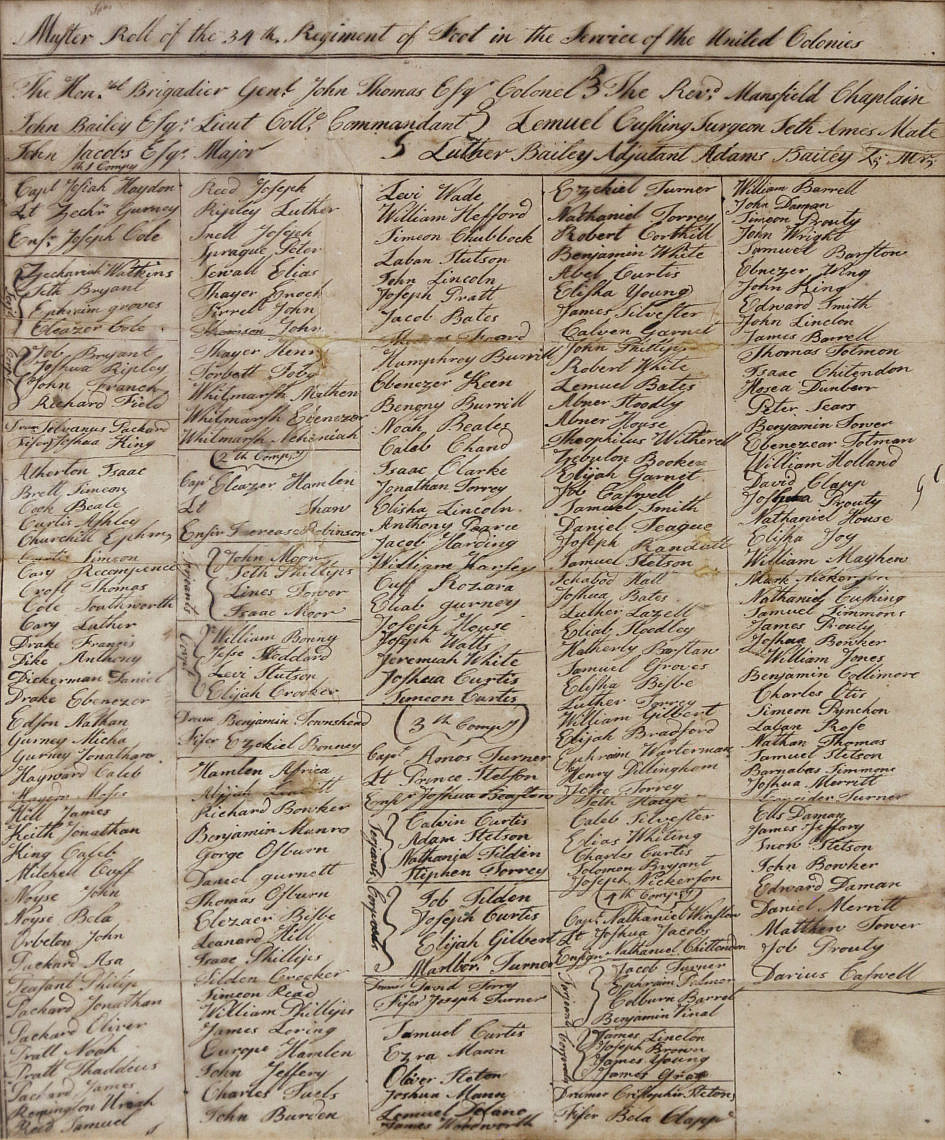 Muster Roll of the 34th. Regiment of Foot in the Service of the United Colonies
The Hon.ble Brigadier Genl. John Thomas Esqr Colonel } The Revd. Mansfield Chaplain
John Bailey Esqr. Lieut Coll. Commandant } Lemuel Cushing Surgeon Seth Ames Mate
John Jacobs Esqr. Major } Luther Bailey Adjutant Adams Bailey Qr Mr
1st Compy
Capt Josiah Haydon
Lt Zechr Gurney
Ensn. Joseph Cole
Zechariah Watkins
Seth Bryant
Ephraim groves
Eleazor Cole
Job Bryant
Joshua Ripley
John French
Richard Field
Drum Solvanus Packard
Fifer Joshua King
Atherton Isaac
Brett Simeon
Cook Beale
Curtis Ashley
Churchill Ephrm
Curtis Simeon
Cary Recompence
Croft Thomas
Cole Southworth
Cary Luther
Drake Francis
Fike Anthony
Dickerman Daniel
Drake Ebenezer
Edson Nathan
Gurney Micha
Gurney Jonathan
Hayward Caleb
Hill James
Keith Jonathan
King Caleb
Mitchell Cuff
Noyse John
Noyse Bela
Orbeton John
Packard Asa
Peasant Philip
Packard Jonathan
Packard Oliver
Pratt Noah
Pratt Thaddeus
Packard James
Remington Uriah
Reed Samuel
Reed Joseph
Ripley Luther
Snell Joseph
Sprague Peter
Sewall Elias
Thayer Enoch
Tirrell John
Thomson John
Thayer Henry
Torbett Toby
Whitmarsh Mathew
Whitmarsh Ebenezer
Whitmarsh Nehemiah
2th Compy
Capt Eleazer Hamlen
Lt Shaw
Ensn Increase Robinson
Serjants
John Moor
Seth Phillips
Lines Tower
Isaac Moor
Corpl
William Bonny
Jesse Stoddard
Levi Stutson
Elijah Crooker
Drum Benjamin Townshend
Fifer Ezekiel Bonney
Hamlen Africa
Richard Bowker
Benjamin Munro
Gorge Osburn
Daniel gurnett
Thomas Osburn
Elezaer Bisbe
Leanard Hill
Isaac Phillips
Tilden Crooker
Simeon Read
William Phillips
James Loring
Europe Hamlen
John Jeffery
Charles Tuels
John Burden
Levi Wade
William Hefford
Simeon Chubbock
Laban Stutson
John Lincoln
Joseph Pratt
Jacob Bates
Humphrey Burrill
Ebenezer Keen
Benony Burrill
Noah Beales
Caleb Chand
Isaac Clarke
Jonathan Torrey
Elisha Lincoln
Anthony Pearce
Jacob Harding
William Hasley
Cuff Rozara
Eliab gurney
Joseph House
Joseph Watts
Jeremiah White
Joshua Curtis
Simeon Curtis
3th Compy
Capt Amos Turner
Lt Prince Stetson
Ensn Joshua Barstow
Serjants
Calvin Curtis
Adam Stetson
Nathaniel Tilden
Stephen Torrey
Corporals
Job Tilden
Joseph Curtis
Elijah Gilbert
Marlbor. Turner
Drumr David Torry
Fifer Joseph Turner
Samuel Curtis
Ezra Mann
Oliver Steton
Joshua Mann
Lemuel Delano
James Woodworth
Ezekiel Turner
Nathaniel Torrey
Robert Corthill
Benjamin White
Abel Curtis
Elisha Young
James Silvester
Calven Garnet
John Phillips
Robert White
Lemuel Bates
Abner Stoodly
Abner House
Theophilus Witherell
Zebulon Booker
Elijah Garnet
Job Caswell
Samuel Smith
Daniel Teague
Joseph Randall
Samuel Stetson
Ichabod Hall
Joshua Bates
Luther Lazell
Eliab Stoodley
Hatherly Barstan
Samuel Groves
Elisha Bisbe
Luther Torrey
William Gilbert
Elijah Bradford
Ephraim Warterman
Henry Dillingham
Jesse Torrey
Seth House
Caleb Silvester
Elias Whiting
Charles Curtis
Solomon Bryant
Joseph Nickerson
4th Compy
Capt. Nathaniel Winslow
Lt Joshua Jacobs
Ensign Nathaniel Chittendon
Serjeants
Jacob Turner
Ephraim Palmer
Colburn Barrel
Benjamin Vinal
Corporals
James Linclon
Joseph Brown
James Young
James Gray
Drumer Cristopher Steton
Fifer Bela Clapp
William Barrell
John Daman
Simeon Prouty
John Wright
Samuel Barstow
Ebnezer Wing
John King
Edward Smith
John Linclon
James Barrell
Thomas Tolmon
Isaac Chitendon
Hosea Dunberr
Peter Sears
Benjamin Tower
Ebenezear Totman
William Holland
David Clapp
Joshua Prouty
Nathaniel House
Elisha Joy
William Mayhew
Mark Nickerson
Nathaniel Cushing
Samuel Simmons
James Prouty
Joshua Bowker
William Jones
Benjamin Collimore
Charles Otis
Simeon Pynchon
Laban Rose
Nathan Thomas
Samuel Stetson
Barnabas Simmons
Joshua Merritt
Turner
Ells Daman
James Jeffary
Snow Stetson
John Bowker
Edward Daman
Daniel Merritt
Matthew Tower
Job Prouty
Darius Caswell